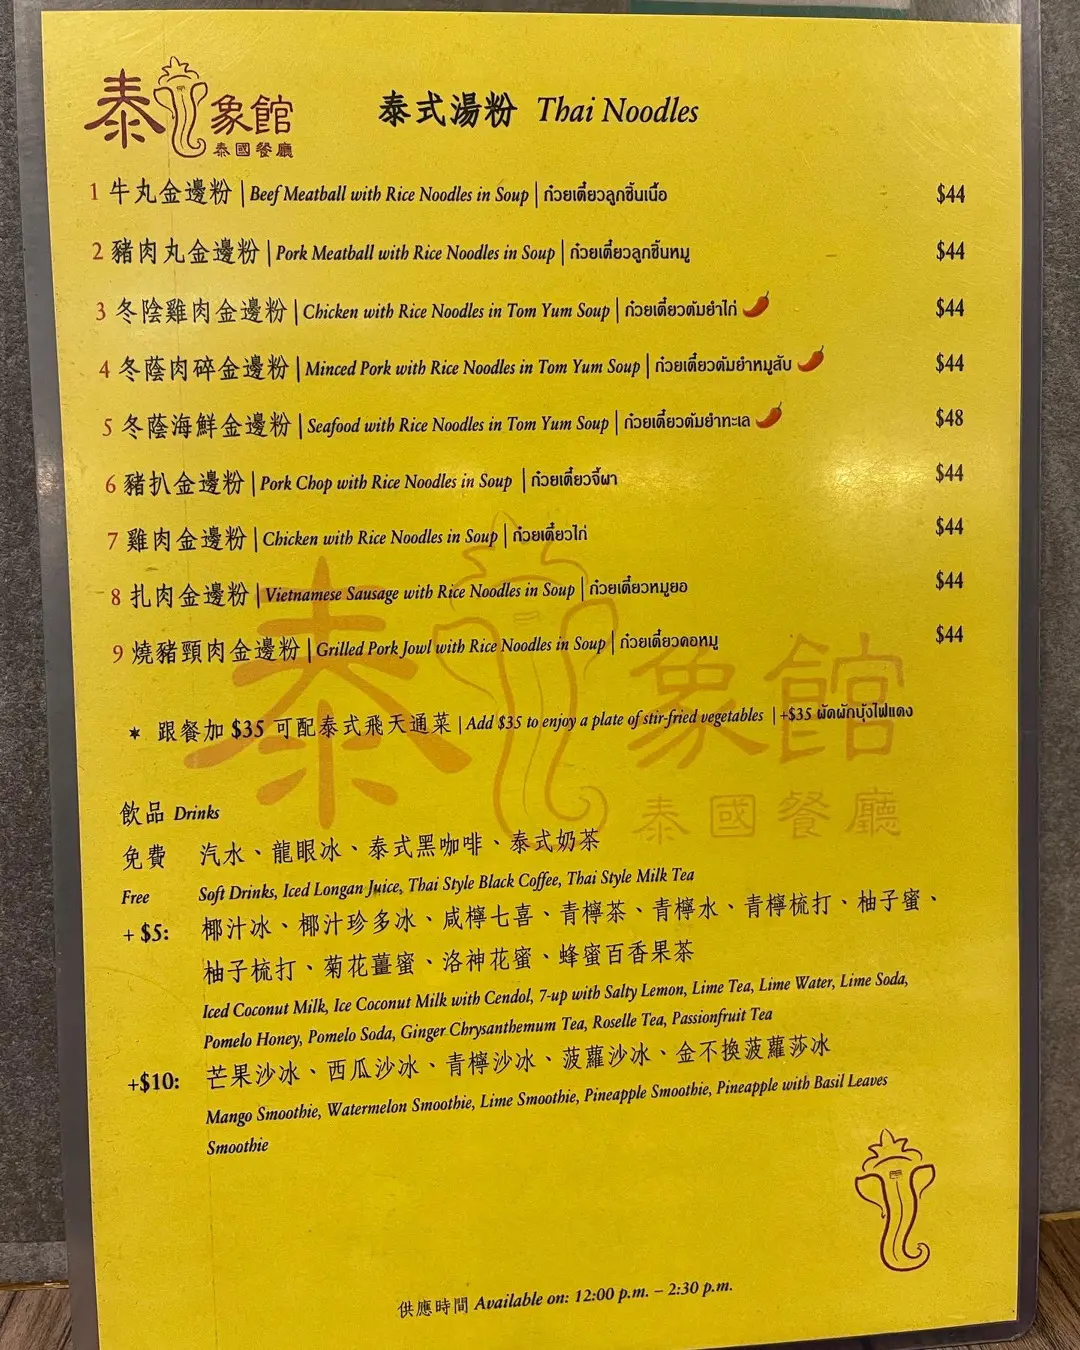 泰象館
泰國餐廳
泰式湯粉 Thai Noodles
1 牛丸金邊粉 | Beef Meatball with Rice Noodles in Soup | ก๋วยเตี๋ยวลูกชิ้นเนื้อ $44
2 豬肉丸金邊粉 | Pork Meatball with Rice Noodles in Soup | ก๋วยเตี๋ยวลูกชิ้นหมู $44
3 冬陰雞肉金邊粉 | Chicken with Rice Noodles in Tom Yum Soup | ก๋วยเตี๋ยวต้มยำไก่ $44
4 冬蔭肉碎金邊粉 | Minced Pork with Rice Noodles in Tom Yum Soup | ก๋วยเตี๋ยวต้มยำหมูสับ $44
5 冬蔭海鮮金邊粉 | Seafood with Rice Noodles in Tom Yum Soup | ก๋วยเตี๋ยวต้มยำทะเล $48
6 豬扒金邊粉 | Pork Chop with Rice Noodles in Soup | ก๋วยเตี๋ยวจี้ผา $44
7 雞肉金邊粉 | Chicken with Rice Noodles in Soup | ก๋วยเตี๋ยวไก่ $44
8 扎肉金邊粉 | Vietnamese Sausage with Rice Noodles in Soup | ก๋วยเตี๋ยวหมูยอ $44
9 燒豬頸肉金邊粉 | Grilled Pork Jowl with Rice Noodles in Soup | ก๋วยเตี๋ยวคอหมู $44
泰象館
泰國餐廳
* 跟餐加 $35 可配泰式飛天通菜 | Add $35 to enjoy a plate of stir-fried vegetables | +$35 ผัดผักบุ้งไฟแดง
飲品 Drinks
免費 汽水、龍眼冰、泰式黑咖啡、泰式奶茶
Free Soft Drinks, Iced Longan Juice, Thai Style Black Coffee, Thai Style Milk Tea
+ $5: 椰汁冰、椰汁珍多冰、咸檸七喜、青檸茶、青檸水、青檸梳打、柚子蜜、
柚子梳打、菊花薑蜜、洛神花蜜、蜂蜜百香果茶
Iced Coconut Milk, Ice Coconut Milk with Cendol, 7-up with Salty Lemon, Lime Tea, Lime Water, Lime Soda,
Pomelo Honey, Pomelo Soda, Ginger Chrysanthemum Tea, Roselle Tea, Passionfruit Tea
+$10: 芒果沙冰、西瓜沙冰、青檸沙冰、菠蘿沙冰、金不換菠蘿莎冰
Mango Smoothie, Watermelon Smoothie, Lime Smoothie, Pineapple Smoothie, Pineapple with Basil Leaves
Smoothie
供應時間 Available on: 12:00 p.m. – 2:30 p.m.